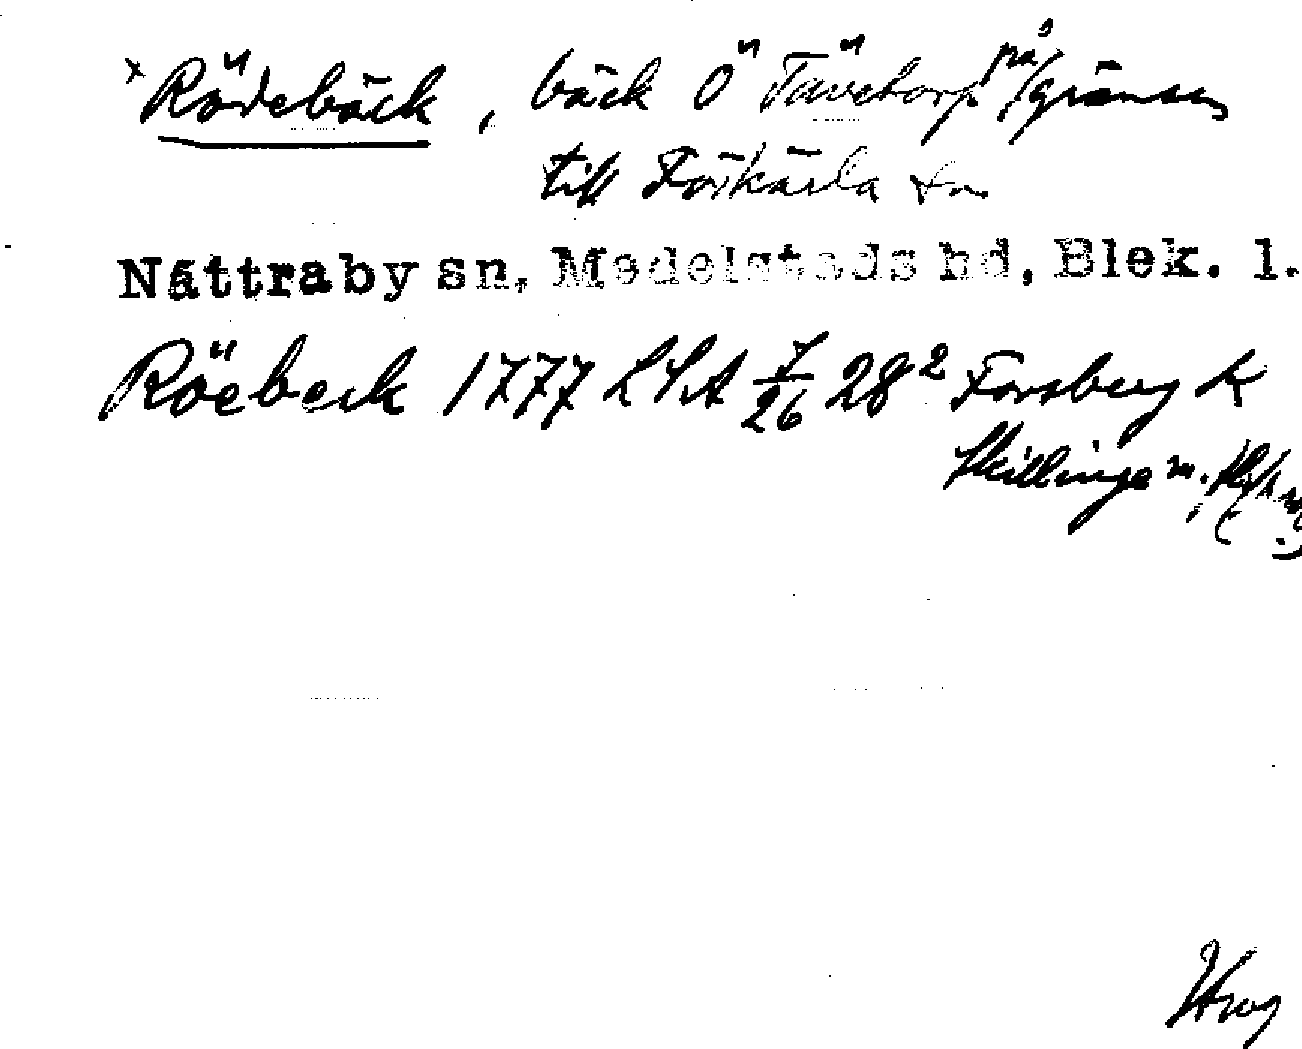 x Rödebäck, bäck Ö Tävetorp på gränsen
till Förkärla sn
Nättraby sn, Medelstads hd, Blek. l.
Röebeck 1777 LSA 7/26 28² Forsberg k
Skillinge m.